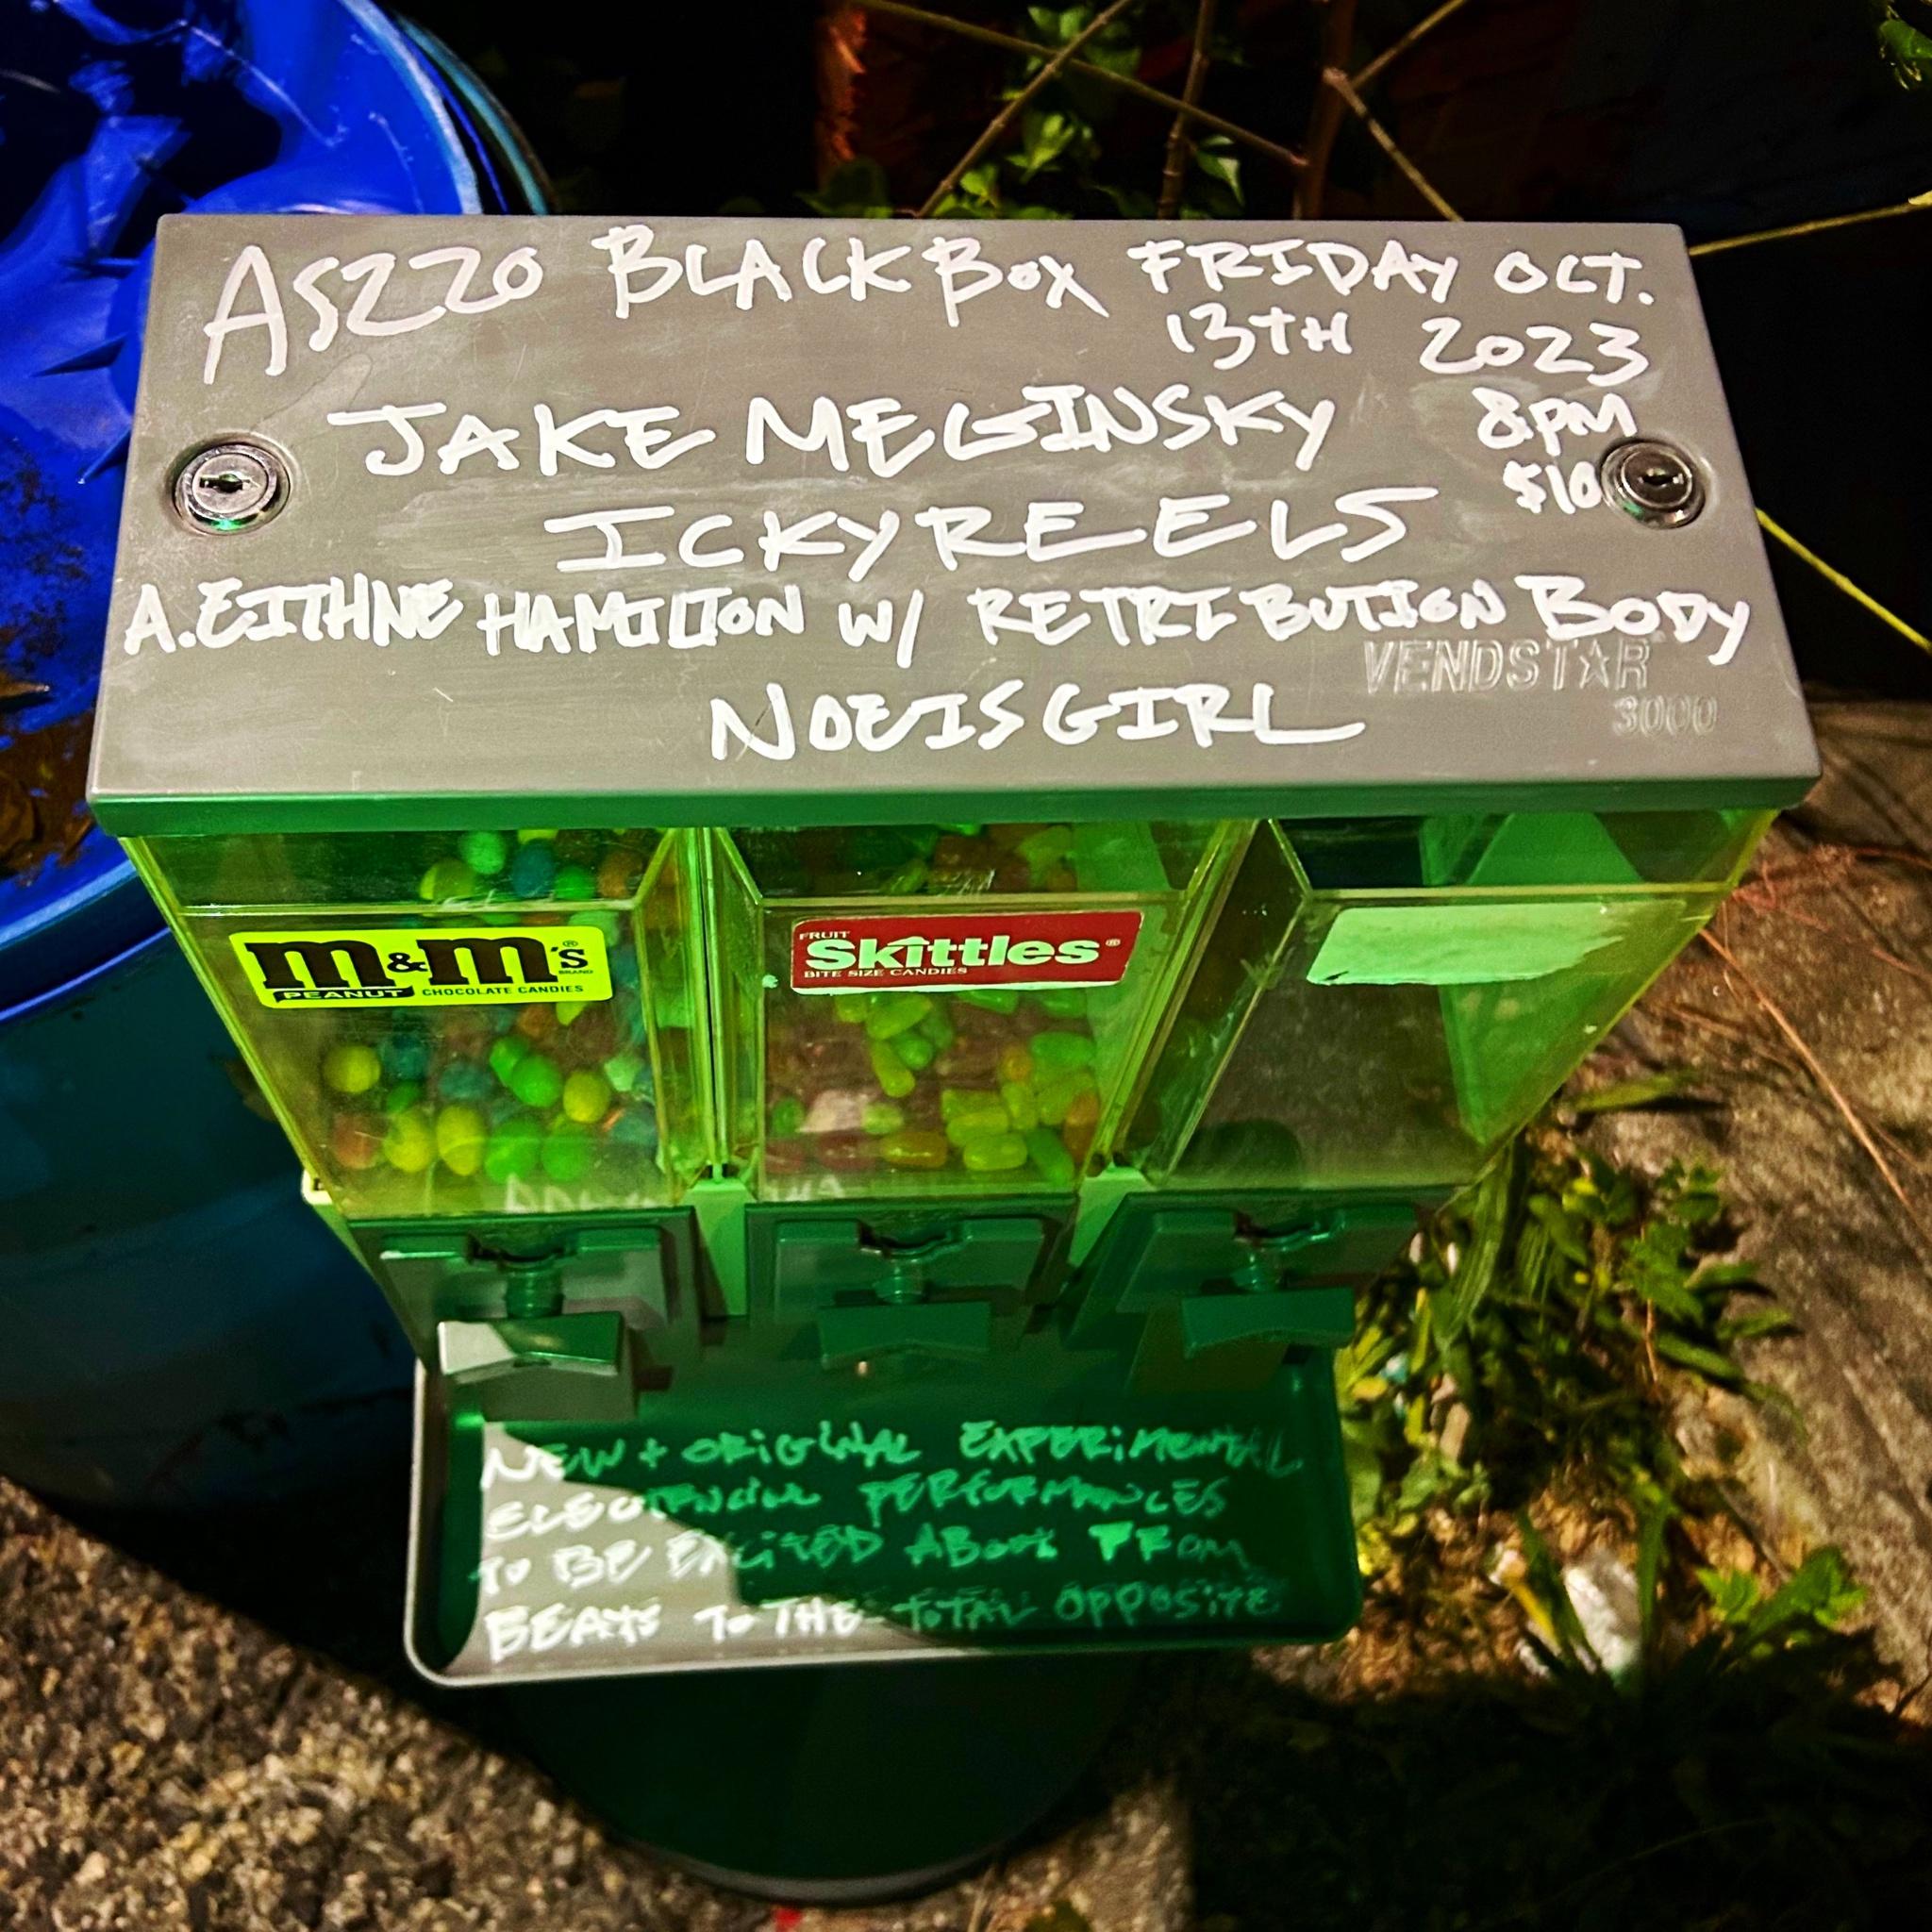 AS220 BLACK BOX FRIDAY OCT.
13TH 2023
JAKE MEGINSKY 8PM
$10
ICKYREELS
A.EITHNE HAMILTON W/ RETRIBUTION BODY
VENDSTAR
3000
NOEISGIRL
m&m's®
BRAND
PEANUT CHOCOLATE CANDIES
FRUIT
Skittles®
BITE SIZE CANDIES
NEW + ORIGINAL EXPERIMENTAL
PERFORMANCES
TO BE EXCITED ABOUT FROM
BEATS TO THE TOTAL OPPOSITE